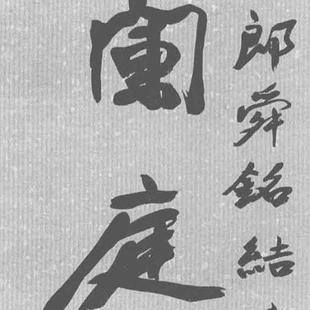 郎舜銘結
庭